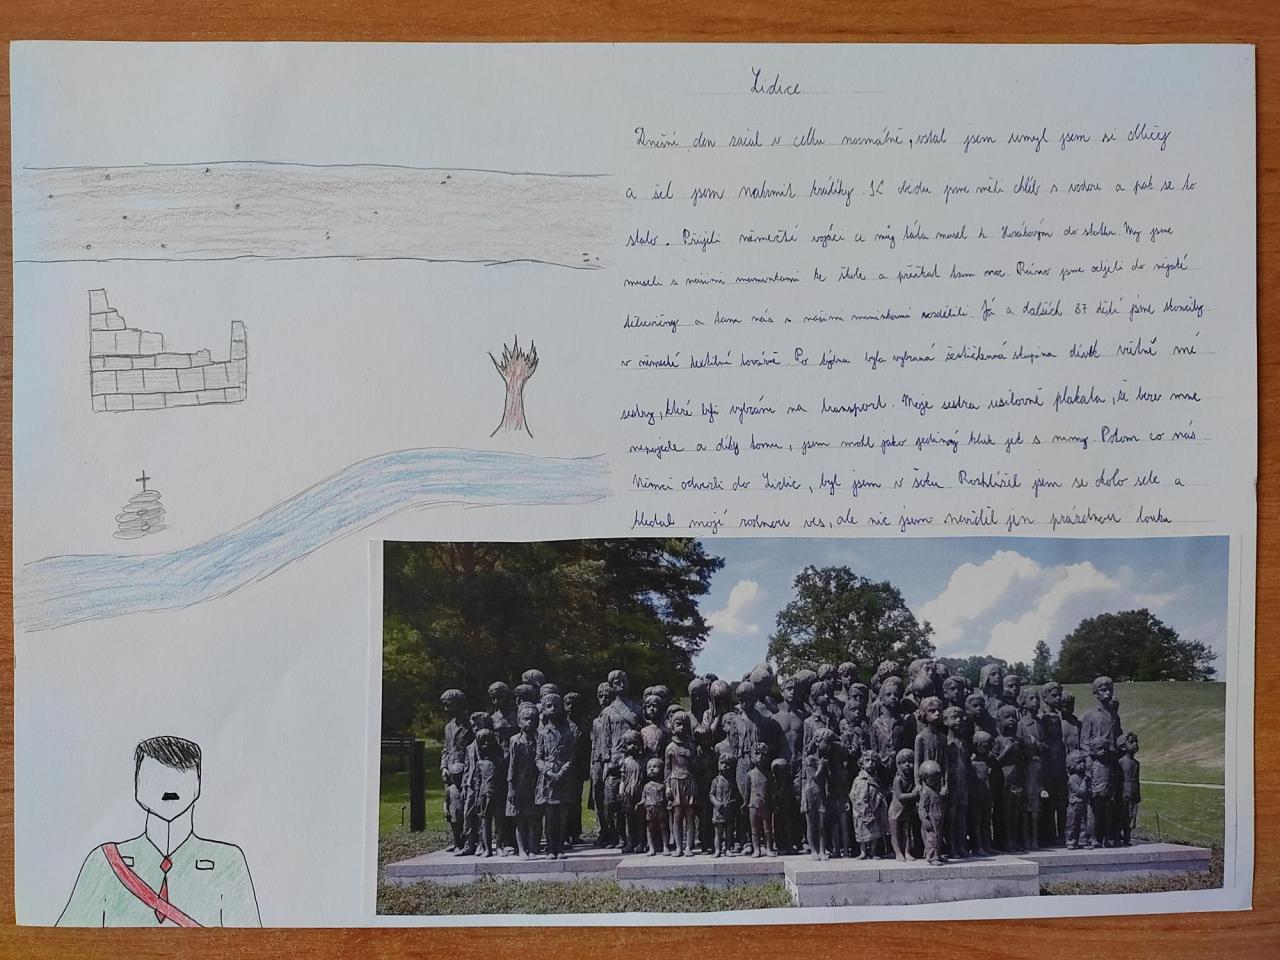 Lidice
Dnešní den začal v celku normálně, vstal jsem umyl jsem si obličej
a šel jsem nakrmit králíky. K obědu jsme měli chléb s vodou a pak se to
stalo. Přijeli němečtí vojáci a můj táta musel k Horákovým do statku. My jsme
museli s našimi maminkami ke škole a přečkat tam noc. Ráno jsme odjeli do nějaké
tělocvičny a tam nás s našimi maminkami rozdělili. Já a dalších 87 dětí jsme skončily
v německé textilní továrně. Po týdnu byla vybraná šestičlenná skupina dívek včetně mé
sestry, které byli vybráni na transport. Moje sestra usilovně plakala, že beze mne
nepojede a díky tomu, jsem mohl jako jediný kluk jet s nimy. Potom co nás
Němci odvezli do Lidic, byl jsem v šoku. Rozhlížel jsem se okolo sebe a
hledal mojí rodnou ves, ale nic jsem neviděl jen prázdnou louku